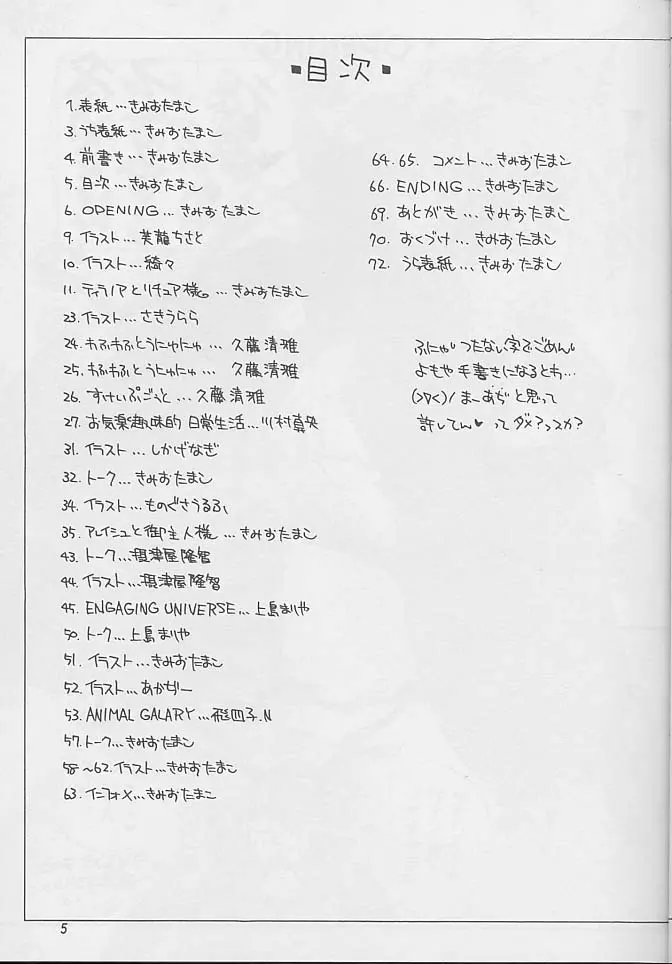 ■目次■
1. 表紙…きみおたまこ
3. うら表紙…きみおたまこ
4. 前書き…きみおたまこ
5. 目次…きみおたまこ
6. OPENING…きみおたまこ
9. イラスト…美龍ちさと
10. イラスト…綺々
11. ティラノアとリチュア様。…きみおたまこ
23. イラスト…さきうらら
24. わふわふとうにゅにゅ…久藤清雅
25. わふわふとうにゅにゅ…久藤清雅
26. すけいぷごっと…久藤清雅
27. お気楽趣味的日常生活…川村真央
31. イラスト…しかげなぎ
32. トーク…きみおたまこ
34. イラスト…ものぐさうるふ
35. アレイシュと御主人様…きみおたまこ
43. トーク…摂津屋隆智
44. イラスト…摂津屋隆智
45. ENGAGING UNIVERSE…上島まりや
50. トーク…上島まりや
51. イラスト…きみおたまこ
52. イラスト…あかぢー
53. ANIMAL GALARY…飛四子.N
57. トーク…きみおたまこ
58〜62. イラスト…きみおたまこ
63. インフォメ…きみおたまこ
64.65. コメント…きみおたまこ
66. ENDING…きみおたまこ
69. あとがき…きみおたまこ
70. おくづけ…きみおたまこ
72. うら表紙…きみおたまこ
ふにゃ〃つたない字でごめん〃
よもや手書きになるとわ…
(>Д<)/ まーあぢと思って
許してん♥ってダメ?っスか?
5